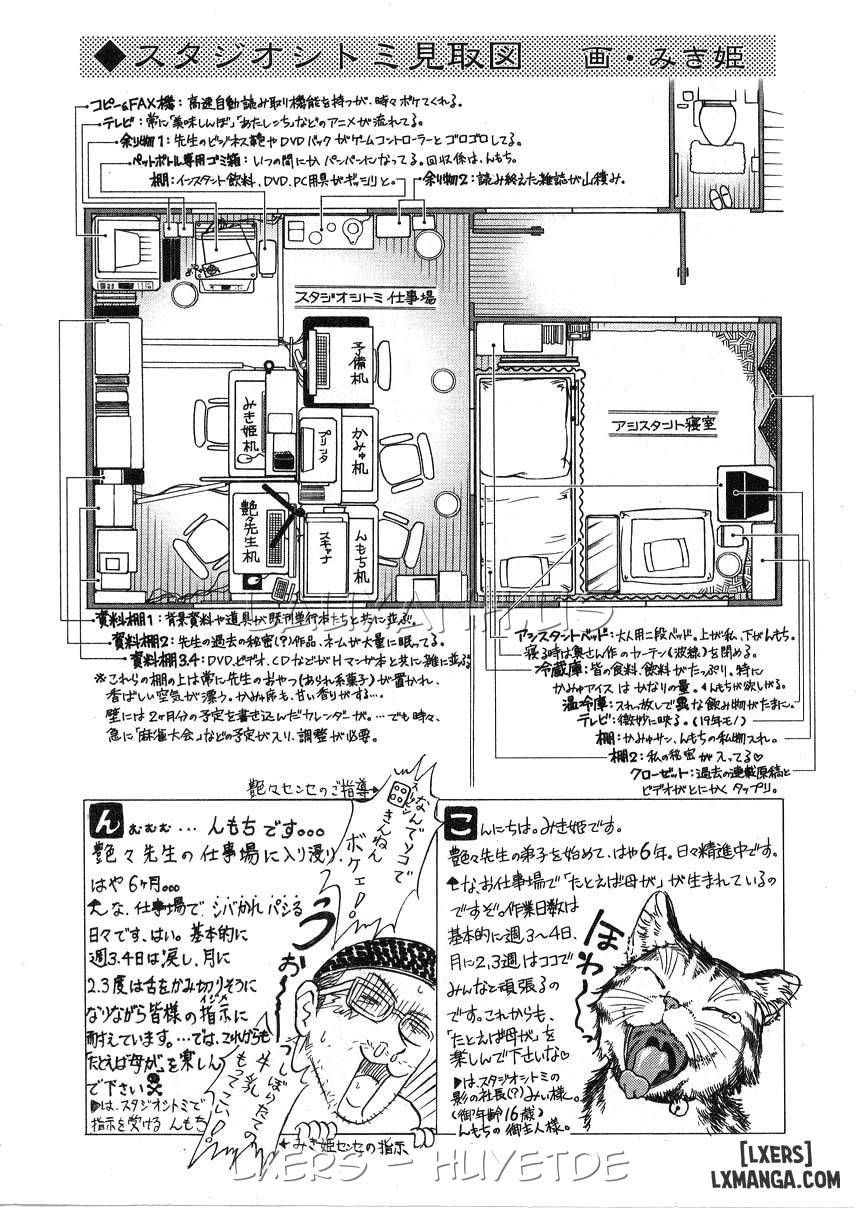 ◆スタジオシトミ見取図　画・みき姫
コピー&FAX機：高速自動読み取り機能を持つが、時々ボケてくれる。
テレビ：常に「美味しんぼ」「あたしンち」などのアニメが流れてる。
余り物1：先生のビジネス鞄やDVDパックがゲームコントローラーとゴロゴロしてる。
ペットボトル専用ゴミ箱：いつの間にかパンパンになってる。回収係は、んもち。
棚：インスタント飲料、DVD、PC用具がギッシリと。
余り物2：読み終えた雑誌が山積み。
スタジオシトミ仕事場
予備机
みき姫机
プリンタ
かみゅ机
艶々先生机
スキャナ
んもち机
アシスタント寝室
資料棚1：背景資料や道具が既刊単行本たちと共に並ぶ。
資料棚2：先生の過去の秘密(?)作品、ネームが大量に眠ってる。
資料棚3.4：DVD、ビデオ、CDなどがHマンガ本と共に雑に並ぶ。
※これらの棚の上は常に先生のおやつ(あられ系菓子)が置かれ、
香ばしい空気が漂う。かみゅ席も、甘い香りがする…。
壁には2ヶ月分の予定を書き込んだカレンダーが。…でも時々、
急に「麻雀大会」などの予定が入り、調整が必要。
アシスタントベッド：大人用二段ベッド。上が私、下がんもち。
寝る時は奥さん作のカーテン(波線)を閉める。
冷蔵庫：皆の食料、飲料がたっぷり。特に
かみゅアイスはかなりの量。んもちが欲しがる。
温冷庫：入れっ放しで異な飲み物がたまに。
テレビ：微妙に映る。(19年モノ)
棚：かみゅサン、んもちの私物入れ。
棚2：私の秘密が入ってる♡
クローゼット：過去の連載原稿と
ビデオがとにかくタップリ。
艶々センセのご指導→
なんでソコで
きんねん
ボケェ!
んむむむ…んもちです。。。
艶々先生の仕事場に入り浸り、
はや6ヶ月。。。
んな、仕事場でシバかれパシる
日々です、はい。基本的に
週3.4日は戻し、月に
2.3度は舌をかみ切りそうに
なりながら皆様の指示に
イジメ
耐えています。…では、これからも
「たとえば母が」を楽しんで
下さい☠
▶は、スタジオシトミで
指示を受けるんもち
うっ
おー
しぼりたての
牛乳
もってこい!
←みき姫センセの指示
こんにちは。みき姫です。
艶々先生の弟子を始めて、はや6年。日々精進中です。
な、お仕事場で「たとえば母が」が生まれているの
ですぞ。作業日数は
基本的に週3〜4日、
月に2,3週はココで
みんなと頑張るの
です。これからも、
「たとえば母が」を
楽しんで下さいな♡
▶は、スタジオシトミの
影の社長(?)みい様。
(御年齢16歳)
んもちの御主人様。
ほわ〜
LXERS - HUYETDE
[LXERS]
LXMANGA.COM